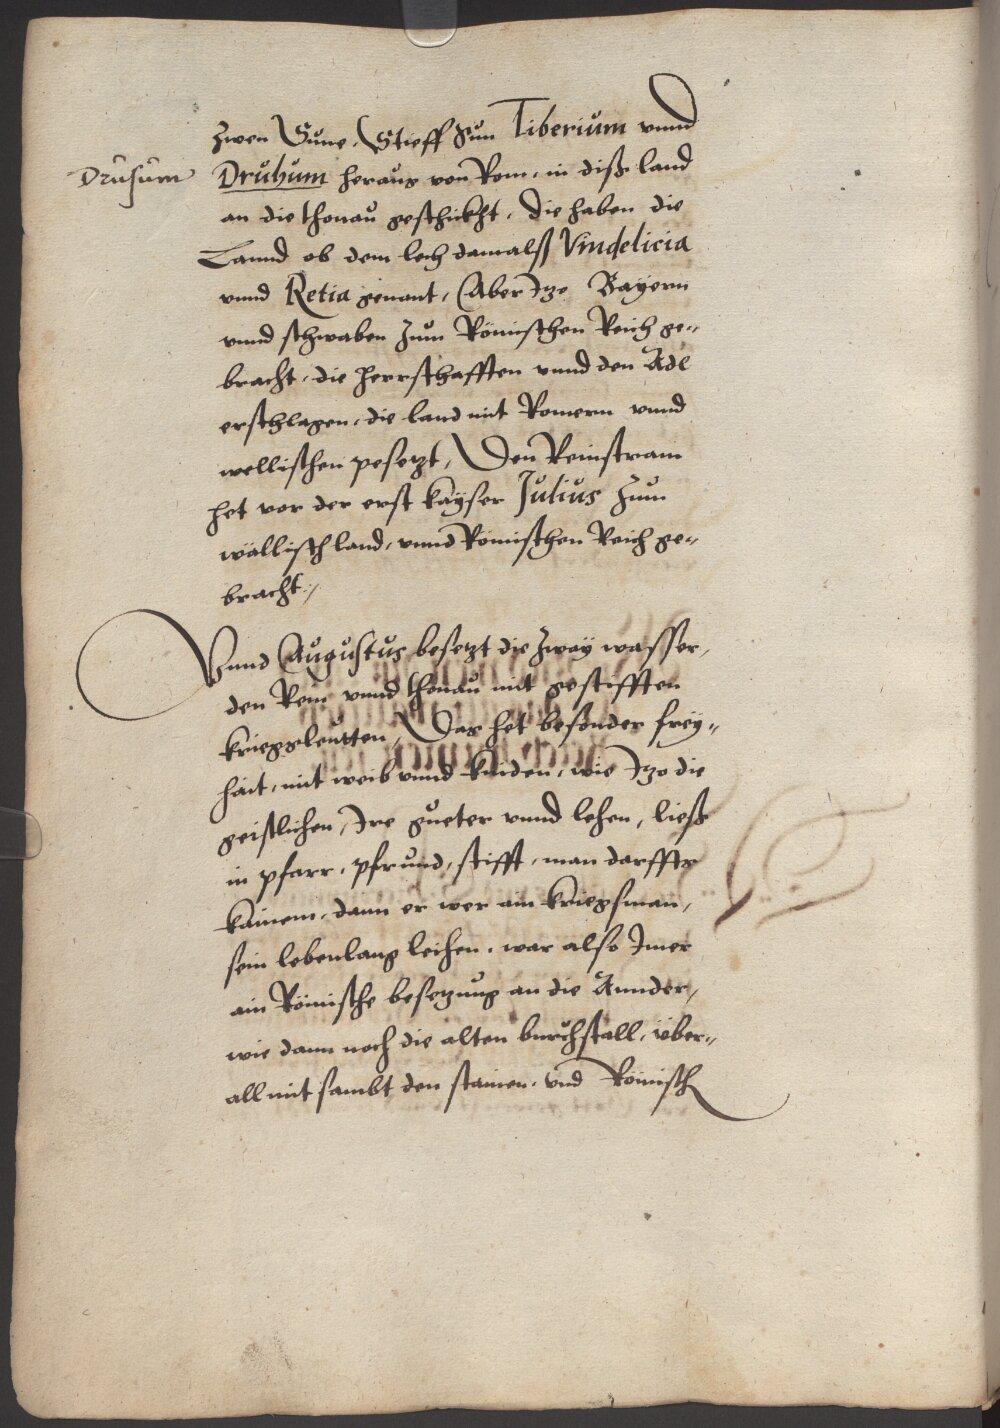 zwen Sůne, Stieff Sůn Tiberiům vnnd
Drůsům
Drůhům heraůs von Rom, in diss land
an die thonaů geschickht, die haben die
Lannd ob dem lech damalß Vindelicia
vnnd Retia genant, Aber Itzo Bayern
vnnd schwaben zům Römischen Reich ge-
bracht, die herrschafften vnnd den Adl
erschlagen, die land mit Romern vnnd
wellischen pesetzt, Den Reinstram
het vor der erst kayser Jůliůs zům
wällisch land, vnnd Römischen Reich ge-
bracht.
Vnnd Aůgůstůs besetzt die zway wasser,
den Rein vnnd thonaů mit gestifften
kriegsleůtten, Das het besonder frey-
hait, mit weib vnnd kinden, wie Itzo die
geistlichen, Ire gůeter vnnd lehen, liess
in pfarr, pfrůnd, stifft, man darffts
kainem, dann er wer ain kriegsman,
sein lebenlang leihen, war also Imer
ain Römische besetzůng an die Annder,
wie dann noch die alten bůrchstall, über-
all mit sambt den stainen, vnd Römisch